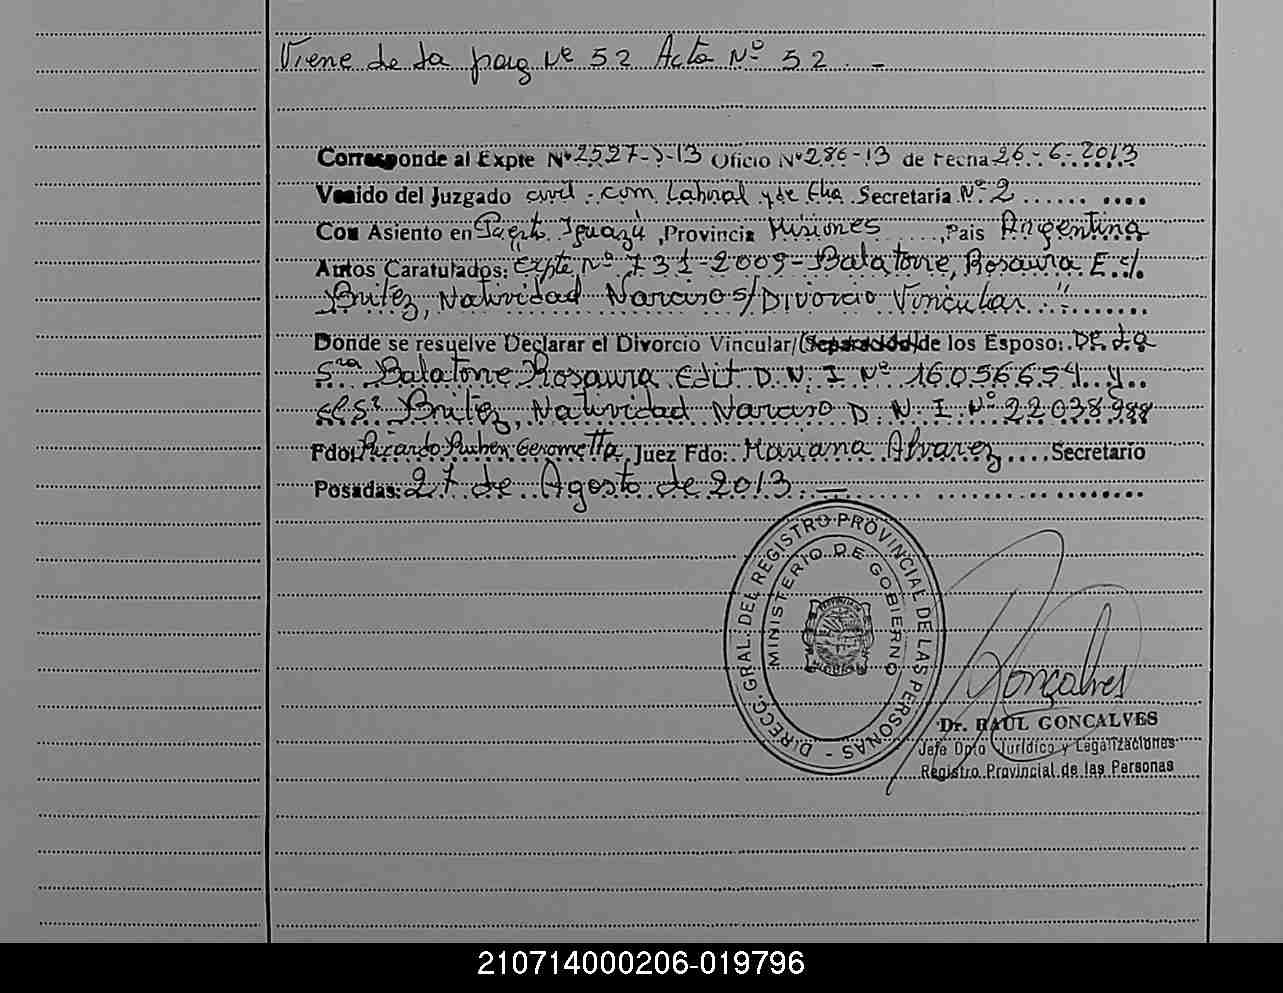 Viene de la pag Nº 52 Acta Nº 52 . -
Corresponde al Expte Nº 2527-J-13 Oficio Nº 286-13 de Fecha 26-6-2013
Venido del Juzgado civil - com Laboral y de Flia Secretaria Nº 2
Con Asiento en Puerto Iguazú, Provincia Misiones, Pais Argentina
Autos Caratulados: Expte Nº 731-2009- Balatone, Rosaura E. c/
Britez, Natividad Narciso s/ Divorcio Vincular."
Donde se resuelve Declarar el Divorcio Vincular/(Separación) de los Esposo: DE La
Sra Balatone Rosaura Edit D.N.I Nº 16056654 y
el Sr Britez, Natividad Narciso D.N.I Nº 22038988
Fdo: Ricardo Ruben Gerometta, Juez Fdo: Mariana Alvarez Secretario
Posadas: 27 de Agosto de 2013 -
DIRECC. GRAL. DEL REGISTRO PROVINCIAL DE LAS PERSONAS -
MINISTERIO DE GOBIERNO
Gonçalves
Dr. RAUL GONCALVES
Jefe Dpto Jurídico y Legalizaciones
Registro Provincial de las Personas
210714000206-019796